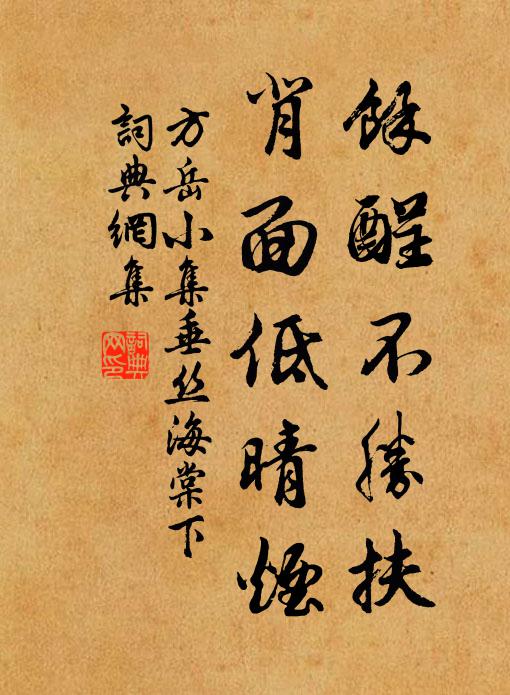 餘酲不勝扶
背面低晴煙
方岳小集垂丝海棠下
詞典網集
詞典网印